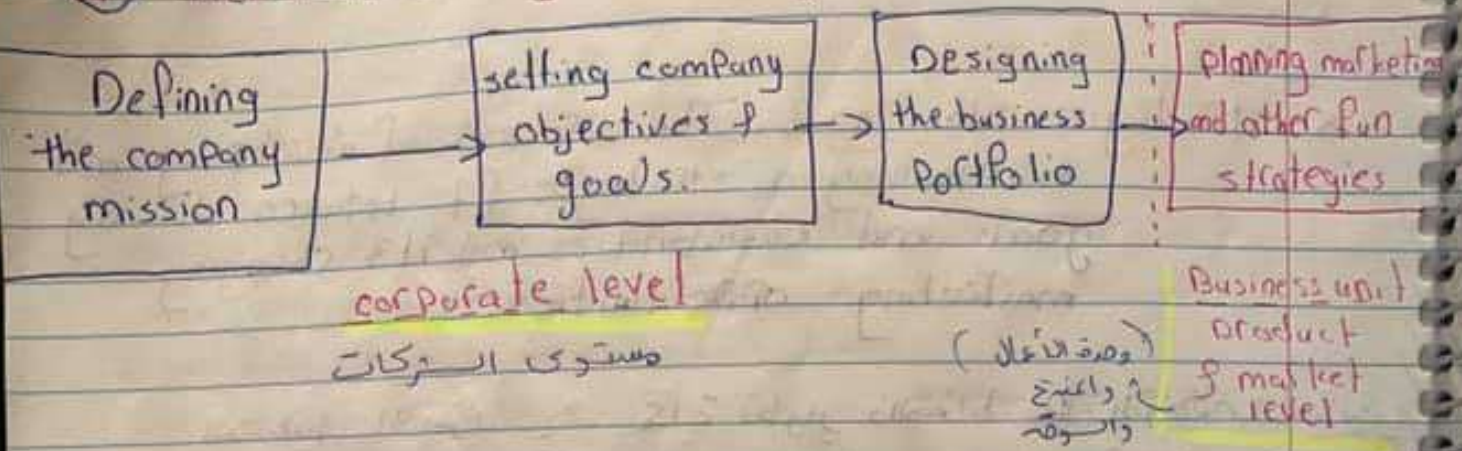 Defining
the company
mission
setting company
objectives &
goals.
Designing
the business
Portfolio
planning marketing
and other fun
strategies
corporate level
مستوى الشركات
Business unit
product
& market
level
(وحدة الأعمال
والمنتج
والسوق